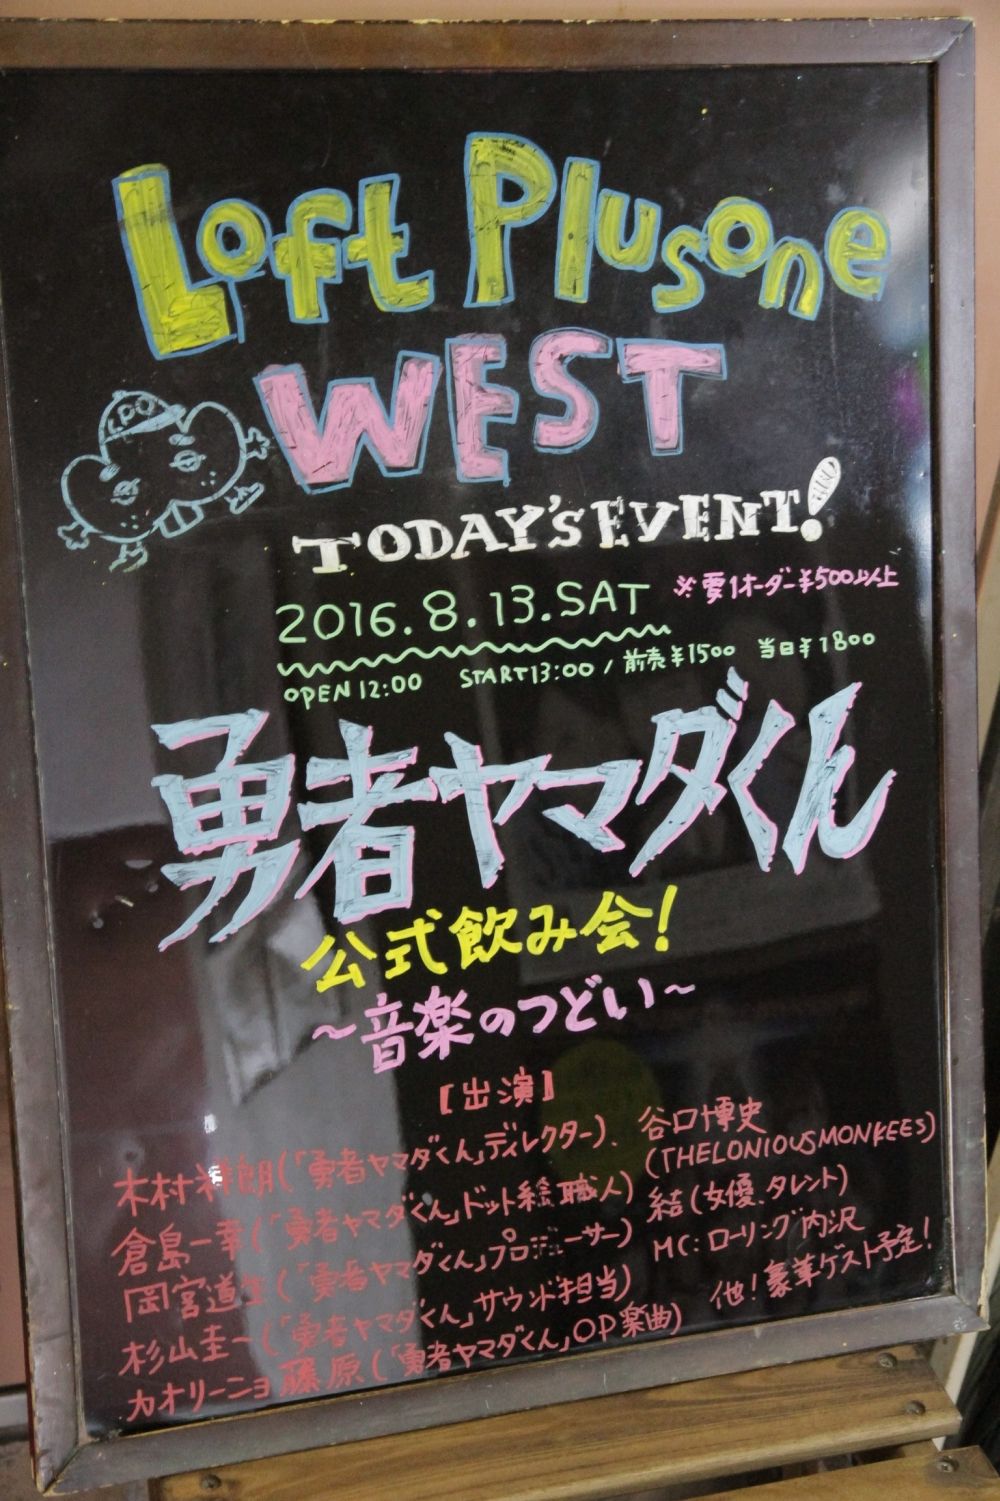 Loft Plusone
WEST
LPO
TODAY'S EVENT!
2016.8.13.SAT ※要1オーダー¥500以上
OPEN 12:00 START 13:00 / 前売¥1500 当日¥1800
勇者ヤマダくん
公式飲み会!
~音楽のつどい~
【出演】
木村祥朗(「勇者ヤマダくん」ディレクター)、谷口博史
(THELONIOUSMONKEES)
倉島一幸(「勇者ヤマダくん」ドット絵職人) 結(女優、タレント)
岡宮道生(「勇者ヤマダくん」プロデューサー) MC:ローリング内沢
杉山圭一(「勇者ヤマダくん」サウンド担当) 他!豪華ゲスト予定!
カオリーニョ藤原(「勇者ヤマダくん」OP楽曲)